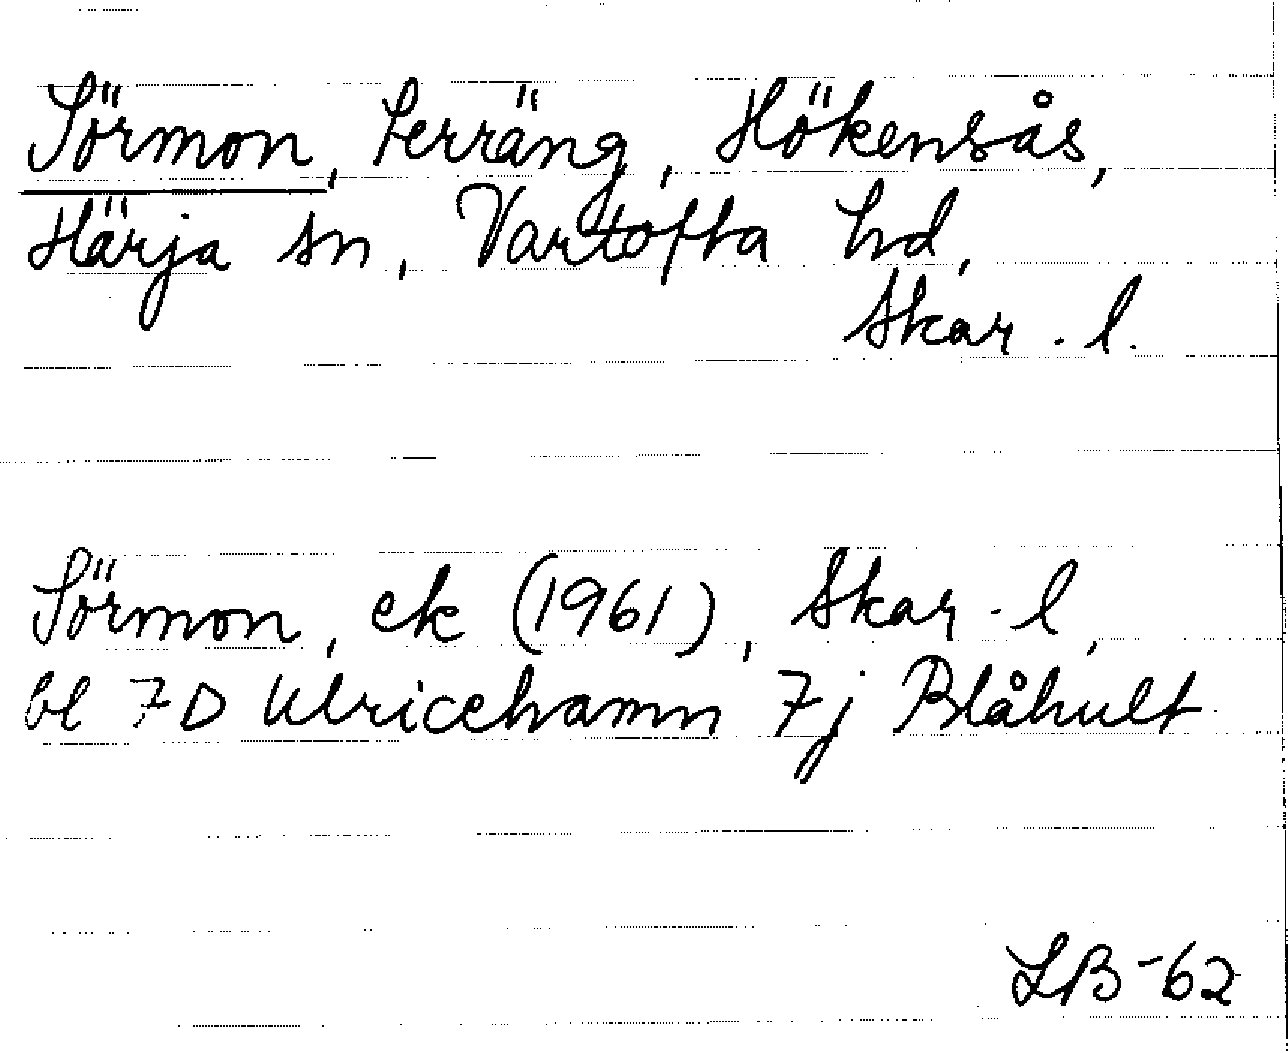 Sörmon, terräng, Hökensås,
Härja sn, Vartofta hd,
Skar. l.
Sörmon, ek (1961), Skar. l,
bl 7D Ulricehamn 7j Blåhult
LB-62